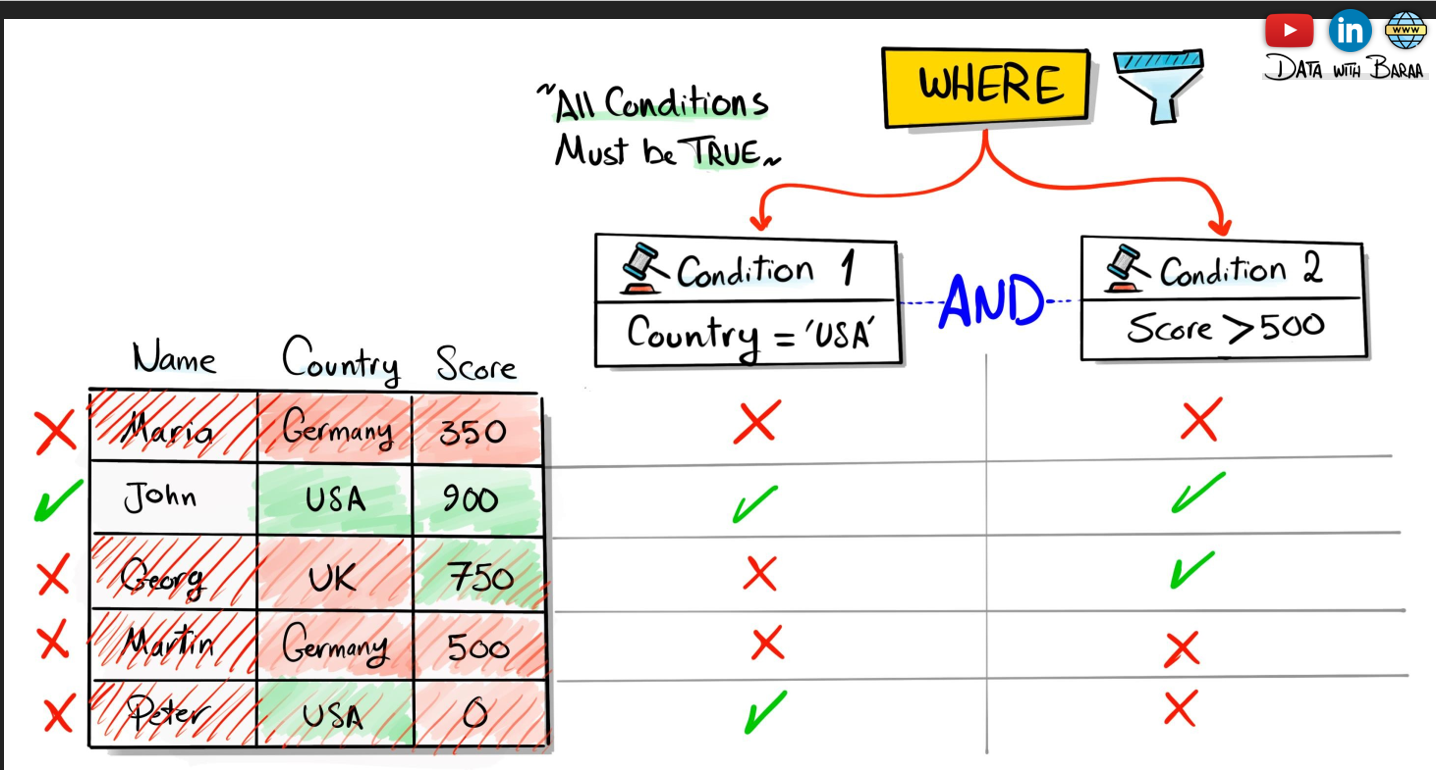 WWW
in
DATA WITH BARAA
WHERE
~All Conditions
Must be TRUE~
Condition 1
Country = 'USA'
AND
Condition 2
Score > 500
Name Country Score
Maria Germany 350
John USA 900
Georg UK 750
Martin Germany 500
Peter USA 0